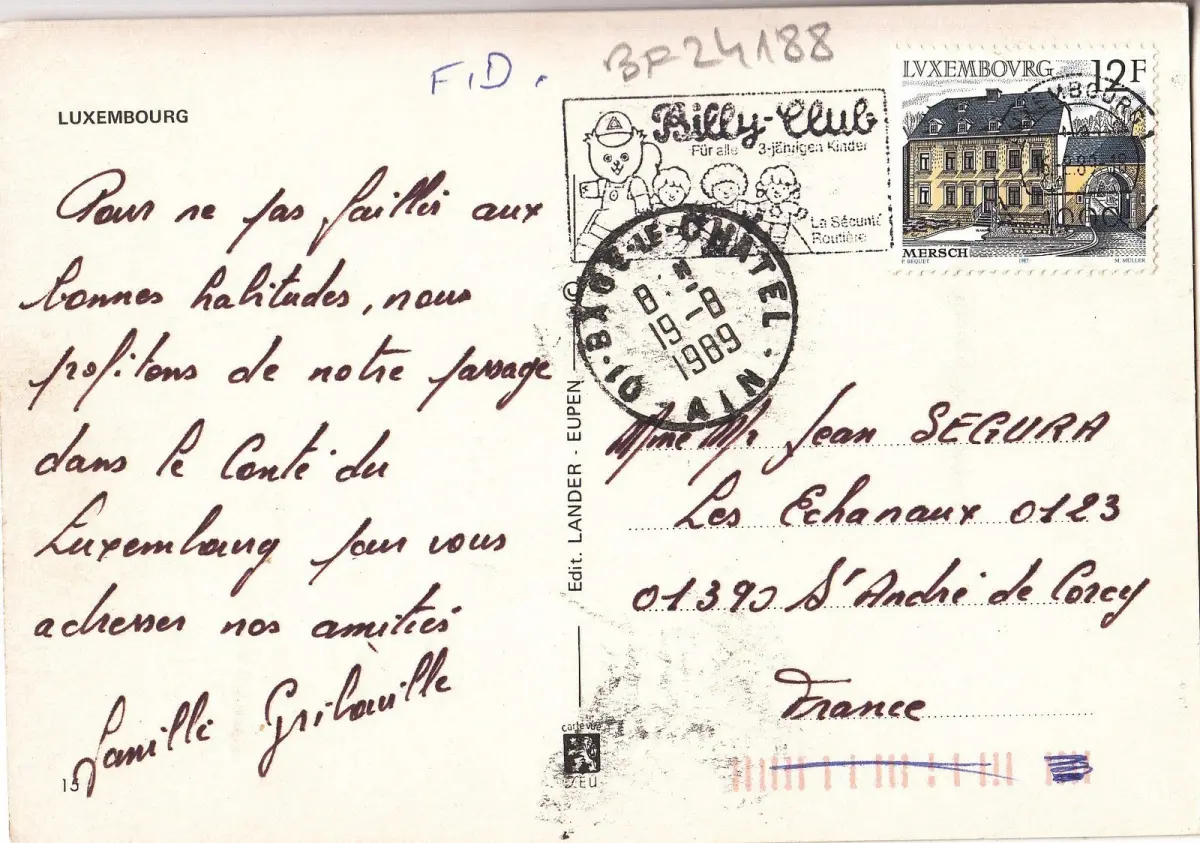 F.D.
BF24188
LUXEMBOURG
Pour ne pas faillir aux
bonnes habitudes, nous
profitons de notre passage
dans le Conté du
Luxembourg pour vous
adresser nos amitiés
famille
15
Billy-Club
Für alle 3-jährigen Kinder
La Sécurité
Routière
LVXEMBOVRG 12F
MERSCH
P. BEQUET 1987 M. MÜLLER
LUXEMBOURG
1000
LE-CHATEL
8
19-8
1989
01 - AIN
© Edit. LANDER - EUPEN
Mme Mr Jean SEGURA
Les Echanaux 0123
01390 St André de Corcy
France
carte vue